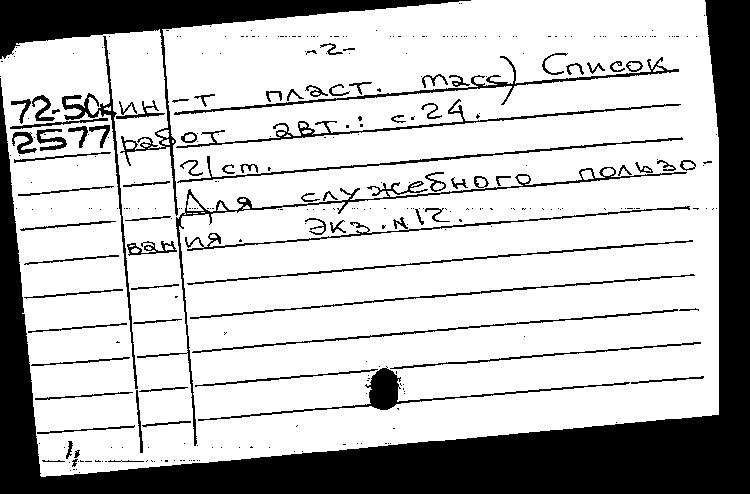 -2-
72-50к ин-т пласт. масс) Список
2577 работ авт.: с.24.
21 ст.
Для служебного пользо-
вания. Экз. N 12.